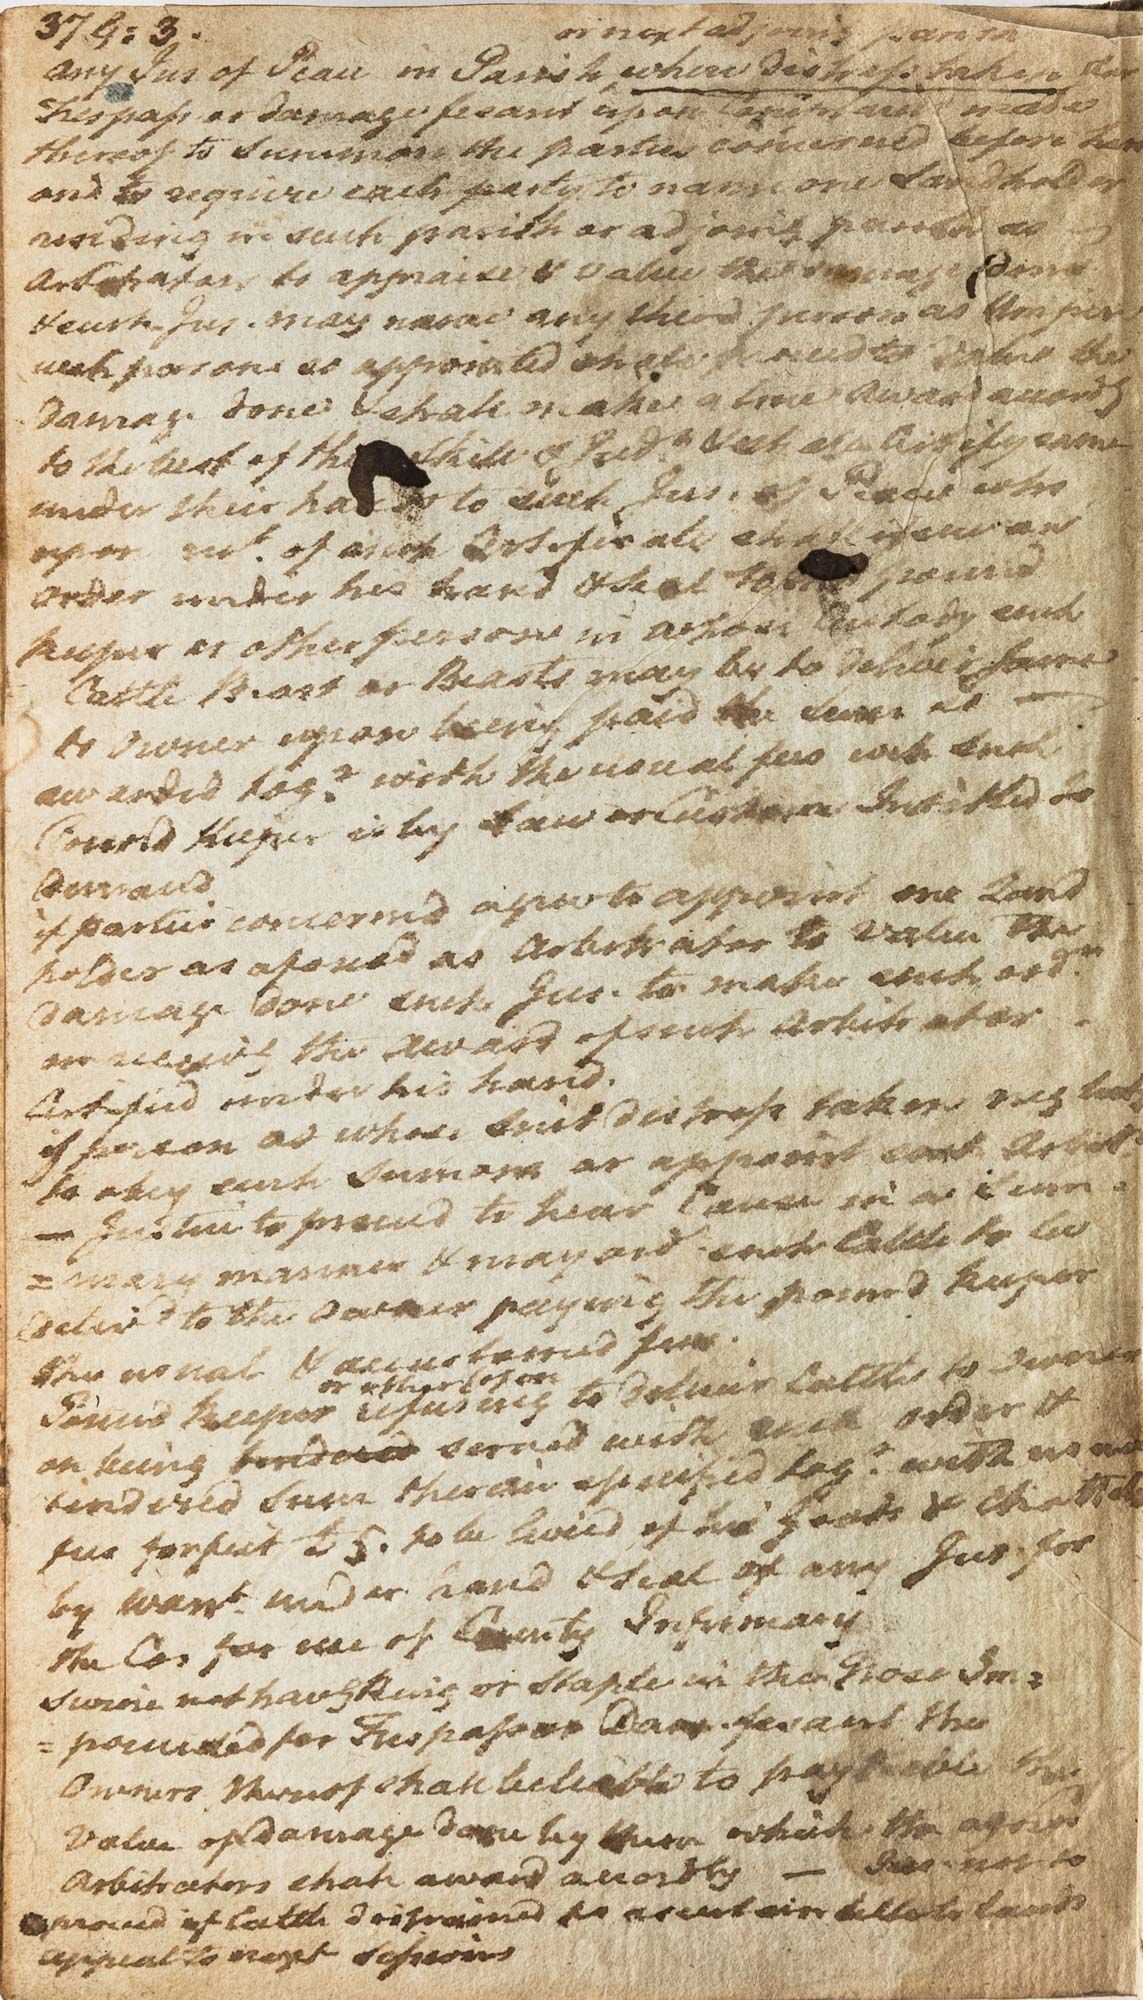 37 G: 3.
or next adjoining parish
any Jus of Peace in Parish where distress taken for
Trespass or damage fesant upon made
thereof to Summon the parties concerned before him
and to require each party to name one Landholder
residing in such parish or adjoing parish as
Arbitrators to appraise & value the damage done
& such Jus. may name any third person as Umpire
wch persons so appointed shall proceed to value the
damage done & shall make a true Award accordg
to the best of their skill & Judt. & shall Certify same
under their hands to such Jus. of Peace who
upon rct. of such Certificate shall issue an
order under his hand & seal to pound
keeper or other persons in whose Custody such
Cattle Beast or Beasts may be to deliver same
to Owner upon being paid the sum so
awarded togr. with the usual fees wch such
Pound Keeper is by Law or Custom Intitled to
demand
if parties concerned agree to appoint one Land
holder as aforesd as Arbitrator to value the
damage done such Jus. to make such ordr
on receivg the Award of such Arbitrator
Certified under his hand.
if person at whose suit distress taken neglect
to obey such Sumons or appoint such Arbitr
— Justice to proceed to hear Cause in a Sum =
= mary manner & may ord such Cattle to be
deliverd to the Owner paying the pound keeper
the usual & accustomed fees.
or other person
Pound keeper refusing to deliver Cattle to Owner
on being tendered served with such order &
tendered Sum therein specified togr. with usual
fees forfeit £5. to be levied of his goods & Chattels
by warrt. under hand & seal of any Jus. for
the Co. for use of County Infirmary
Swine not having Ring or Staple in their Nose Im =
= pounded for Trespass or Dam. fesant the
Owners thereof shall be liable to pay the
value of damage done by them which the aforesd
Arbitrators shall award accordly — Jus. not to
proceed if Cattle distrained to ascertain title to Lands
appeal to next Sessions